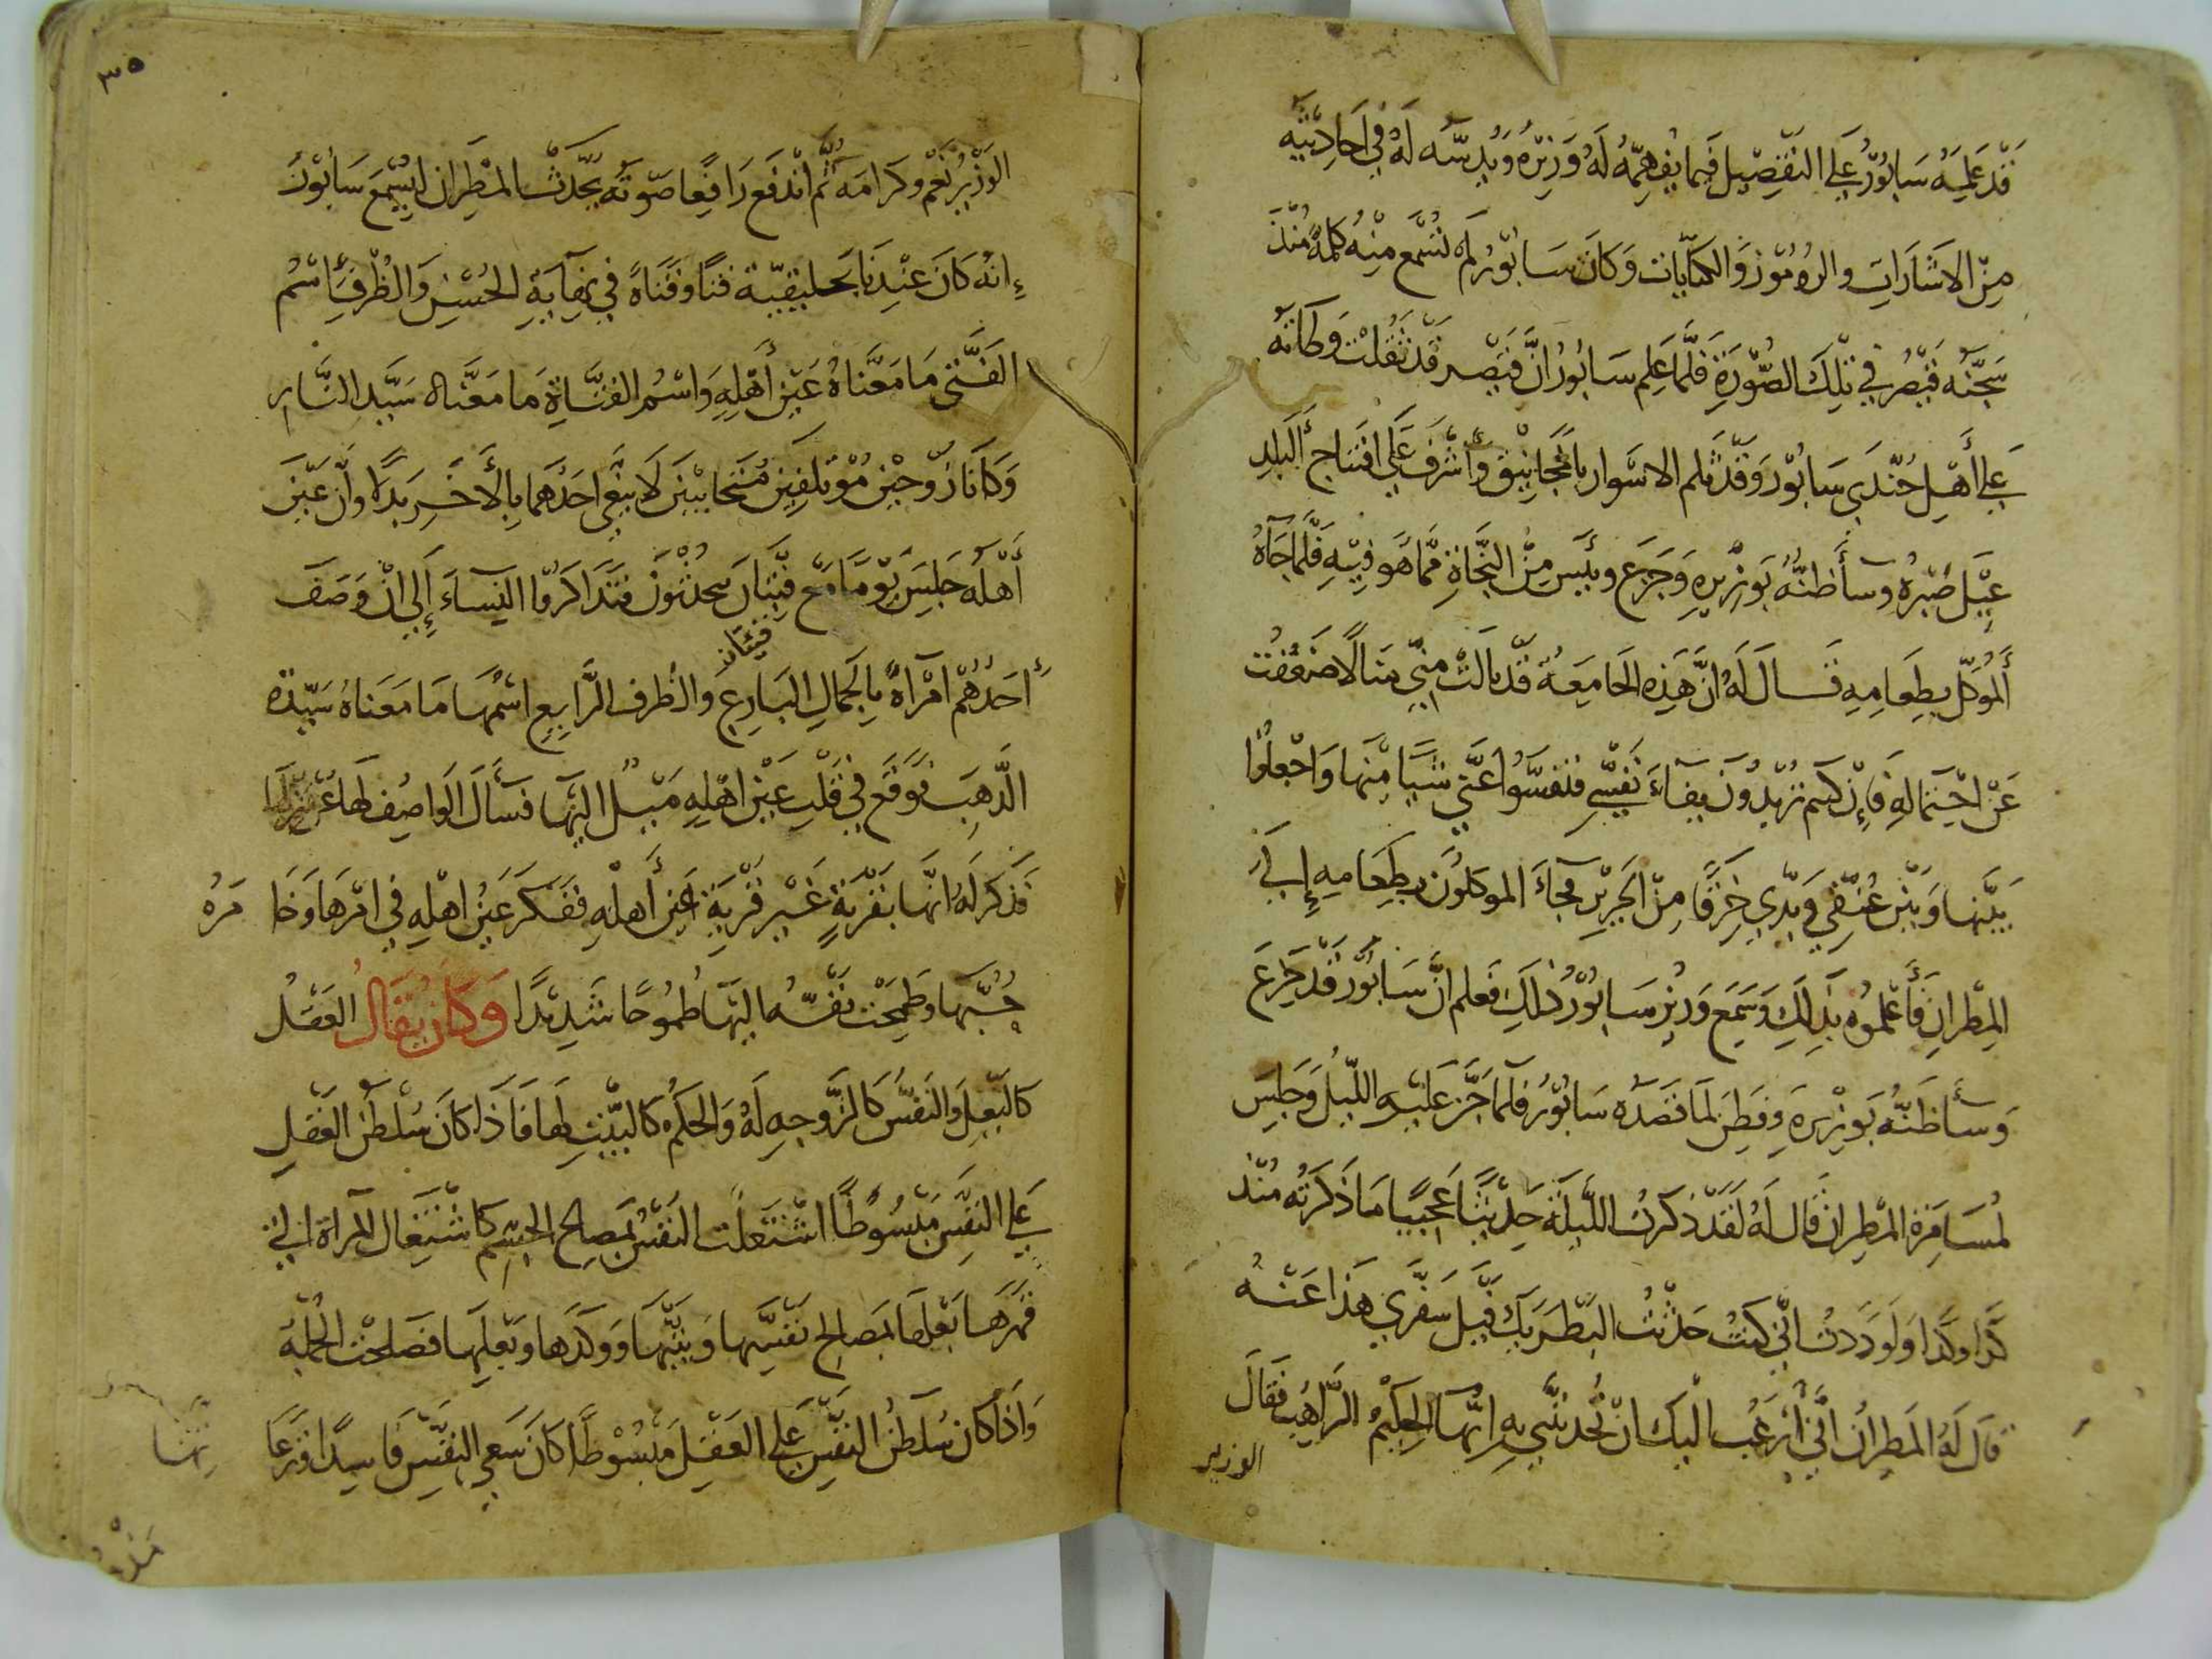 قَدْ عَلِمَهُ سَابُورُ عَلَى التَفْصِيل فيمَا يُفهِمُهُ لَهُ وَزِيرُهُ وَيَدسّه لَهُ فِي أَحَادِيثِهِ
مِنَ الاشَارَاتِ والرُمُوزِ وَالكنَايَات وَكَانَ سَابُورُ لَمْ تُسْمَع مِنْهُ كَلِمَةٌ مُنْذُ
سَجَنَهُ قَيْصَرُ فِي تِلْكَ الصُّورَةِ فَلَمَّا عَلِمَ سَابُورُ انَّ قَيْصَر قَد ثَقُلَتْ وَطاتُه
عَلَى أَهْلِ جُنْدَى سَابُورَ وَقَدْ ثلم الاسْوار بالمَجَانِيق وأَشْرَفَ عَلَى افتتاح البَلَدِ
عِيلَ صَبْرُهُ وسأَ ظنُّهُ بَوَزِيرِهِ وَجَزِعَ ويئسَ مِنَ النَجَاةِ مِمَّا هُو فِيهِ فَلَمَّا جَآهُ
المُوَكّل بطِعَامِهِ قَالَ لَهُ انَّ هَذِهِ الجَامِعَة قَدْ نالَتْ مِنّي مَنالًا ضَعُفْتُ
عَنْ احْتِمَالِهِ فَإِنْ كنتم تُرِيدُونَ بَقاءَ نَفْسِي فنَفِّسُوا عَنّي شَيًا مِنْهَا وَاجْعَلُوا
بَيْنَهَا وَبَيْنَ عُنُقِي وَيَدَي خِرَقًا مِنَ الحَرِيرِ فَجاءَ الموكلُونَ بِطعَامِهِ إِلَى
المِطْرَانِ فَأَعْلَمُوهُ بذَلِكَ وَسَمِعَ وَزِيرُ سَابُورُ ذلِكَ فَعلم انَّ سَابُورَ قَد جَزِعَ
وَسأَ ظَنُّهُ بَوَزِيرِهِ وفَطِنَ لمَا قَصَدَهُ سَابُورُ فَلَمَّا جَنَّ عَلَيْهِ اللَّيْلُ وَجَلِسَ
لمُسَامَرَة المطْرِانِ قَالَ لَهُ لَقَدْ ذكرتُ اللَّيلَةَ حَدِيثًا عَجِيبًا مَا ذَكَرْتُه مُنْذ
كَذَا وكَذَا وَلَوَدَدتُ انّي كنتُ حَدَّثْتُ البَطْرَيَكَ قَبْلَ سَفَرِي هَذَا عَنْهُ
قَالَ لَهُ المَطرانُ انّي أَرْغَبُ اليْكَ انْ تُحَدِثَنِي بِهِ ايُّهَا الحَكِيمُ الرَّاهِبُ فَقَالَ
الوزير
٣٥
الوَزِيرُ نَعَمْ وكَرامَة ثُمَّ انْدَفَعَ رَافِعًا صَوْتَهُ يُحَدّثُ المِطْرَانَ ليُسْمِعَ سَابُورَ
انَهُ كَانَ عِنْدِنَا بَحليقيّة فتًا وفَتَاةٌ فِي نِهَايَةِ الحُسْنِ وَالظُّرْفِ اسْمُ
الفَتَى مَا مَعْنَاهُ عَيْن أَهْلِهِ وَاسْمُ الفَتَاةِ مَا مَعْنَاه سَيّد النَّارِ
وَكَانَا زَوْجَيْنِ مُؤْتَلِفِيْنِ مُتَحَابيْنِ لَا يَبْغِي احَدُهُمَا بِالأخَرِ بَدَلًا وانَّ عَيْنَ
أَهْلَهُ جَلِسَ يَوْمًا مَعَ فتيانٍ يتحدثُونَ فتَذَاكَرُوا النِسَاءَ إِلَى انْ وَصَفَ
فتيان
أَحَدُهُمْ امْرَاةً بِالجَمَالِ البَارِعِ وَالظرف الرَّايِعِ اسْمُهَا مَا مَعَناهُ سَيّدَة
الذَّهَبَ فَوَقَعَ فِي قَلْبِ عَيْنَ اهْلِهِ مَيْلٌ اليْهَا فسَأَلَ الوَاصِفَ لهَا عَنْ منزلها
فَذكَرَ لَهُ انَّهَا بقَرْيَةٍ غَيْر قَرْيَةِ عَين أَهلِهِ فَفَكَرَ عَيْنُ اهْلِهِ فِي امْرِهَا وَخَا مَرهُ
حُبُّهَا وطَمِحَتْ نَفْسُه اليْهَا طُمُوحًا شَدِيْدًا وَكَانَ يُقَالُ العَقْلُ
كَالبَعْلِ وَالنَفْسُ كَالزَّوجةِ لَهُ وَالجسْمُ كَالبَيْتِ لهَا فَاذَا كَانَ سُلْطَنُ العَقْلِ
عَلَى النَفْسِ مَبْسُوطًا اشْتَغَلَت النَفْسُ بمَصِالِح الجِسْمِ كَاشْتِغَال المَرْاة التي
قَهَرَهَا بَعْلُهَا بمَصالِح نَفْسِهَا وَبَيْتِهَا وَوَلَدَهَا وَبَعْلِهَا فصَلَحَتْ الجُمْلَةُ
وَاذَا كَانَ سُلَطنُ النَفْسِ عَلَى العَقْلِ مَبْسُوْطًا كَانَ سَعِي النفْسِ فَاسِدًا